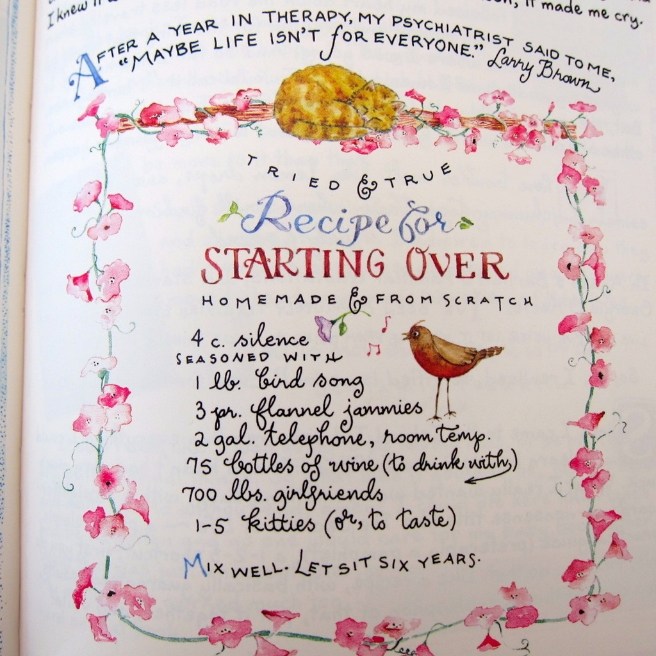 I knew it it made me cry.
AFTER A YEAR IN THERAPY, MY PSYCHIATRIST SAID TO ME,
"MAYBE LIFE ISN'T for EVERYONE." Larry Brown
TRIED & TRUE
Recipe for
STARTING OVER
HOMEMADE & FROM SCRATCH
4 c. silence
SEASONED WITH
1 lb. bird song
3 pr. flannel jammies
2 gal. telephone, room temp.
75 bottles of wine (to drink with)
700 lbs. girlfriends
1-5 kitties (or, to taste)
MIX WELL. LET SIT SIX YEARS.